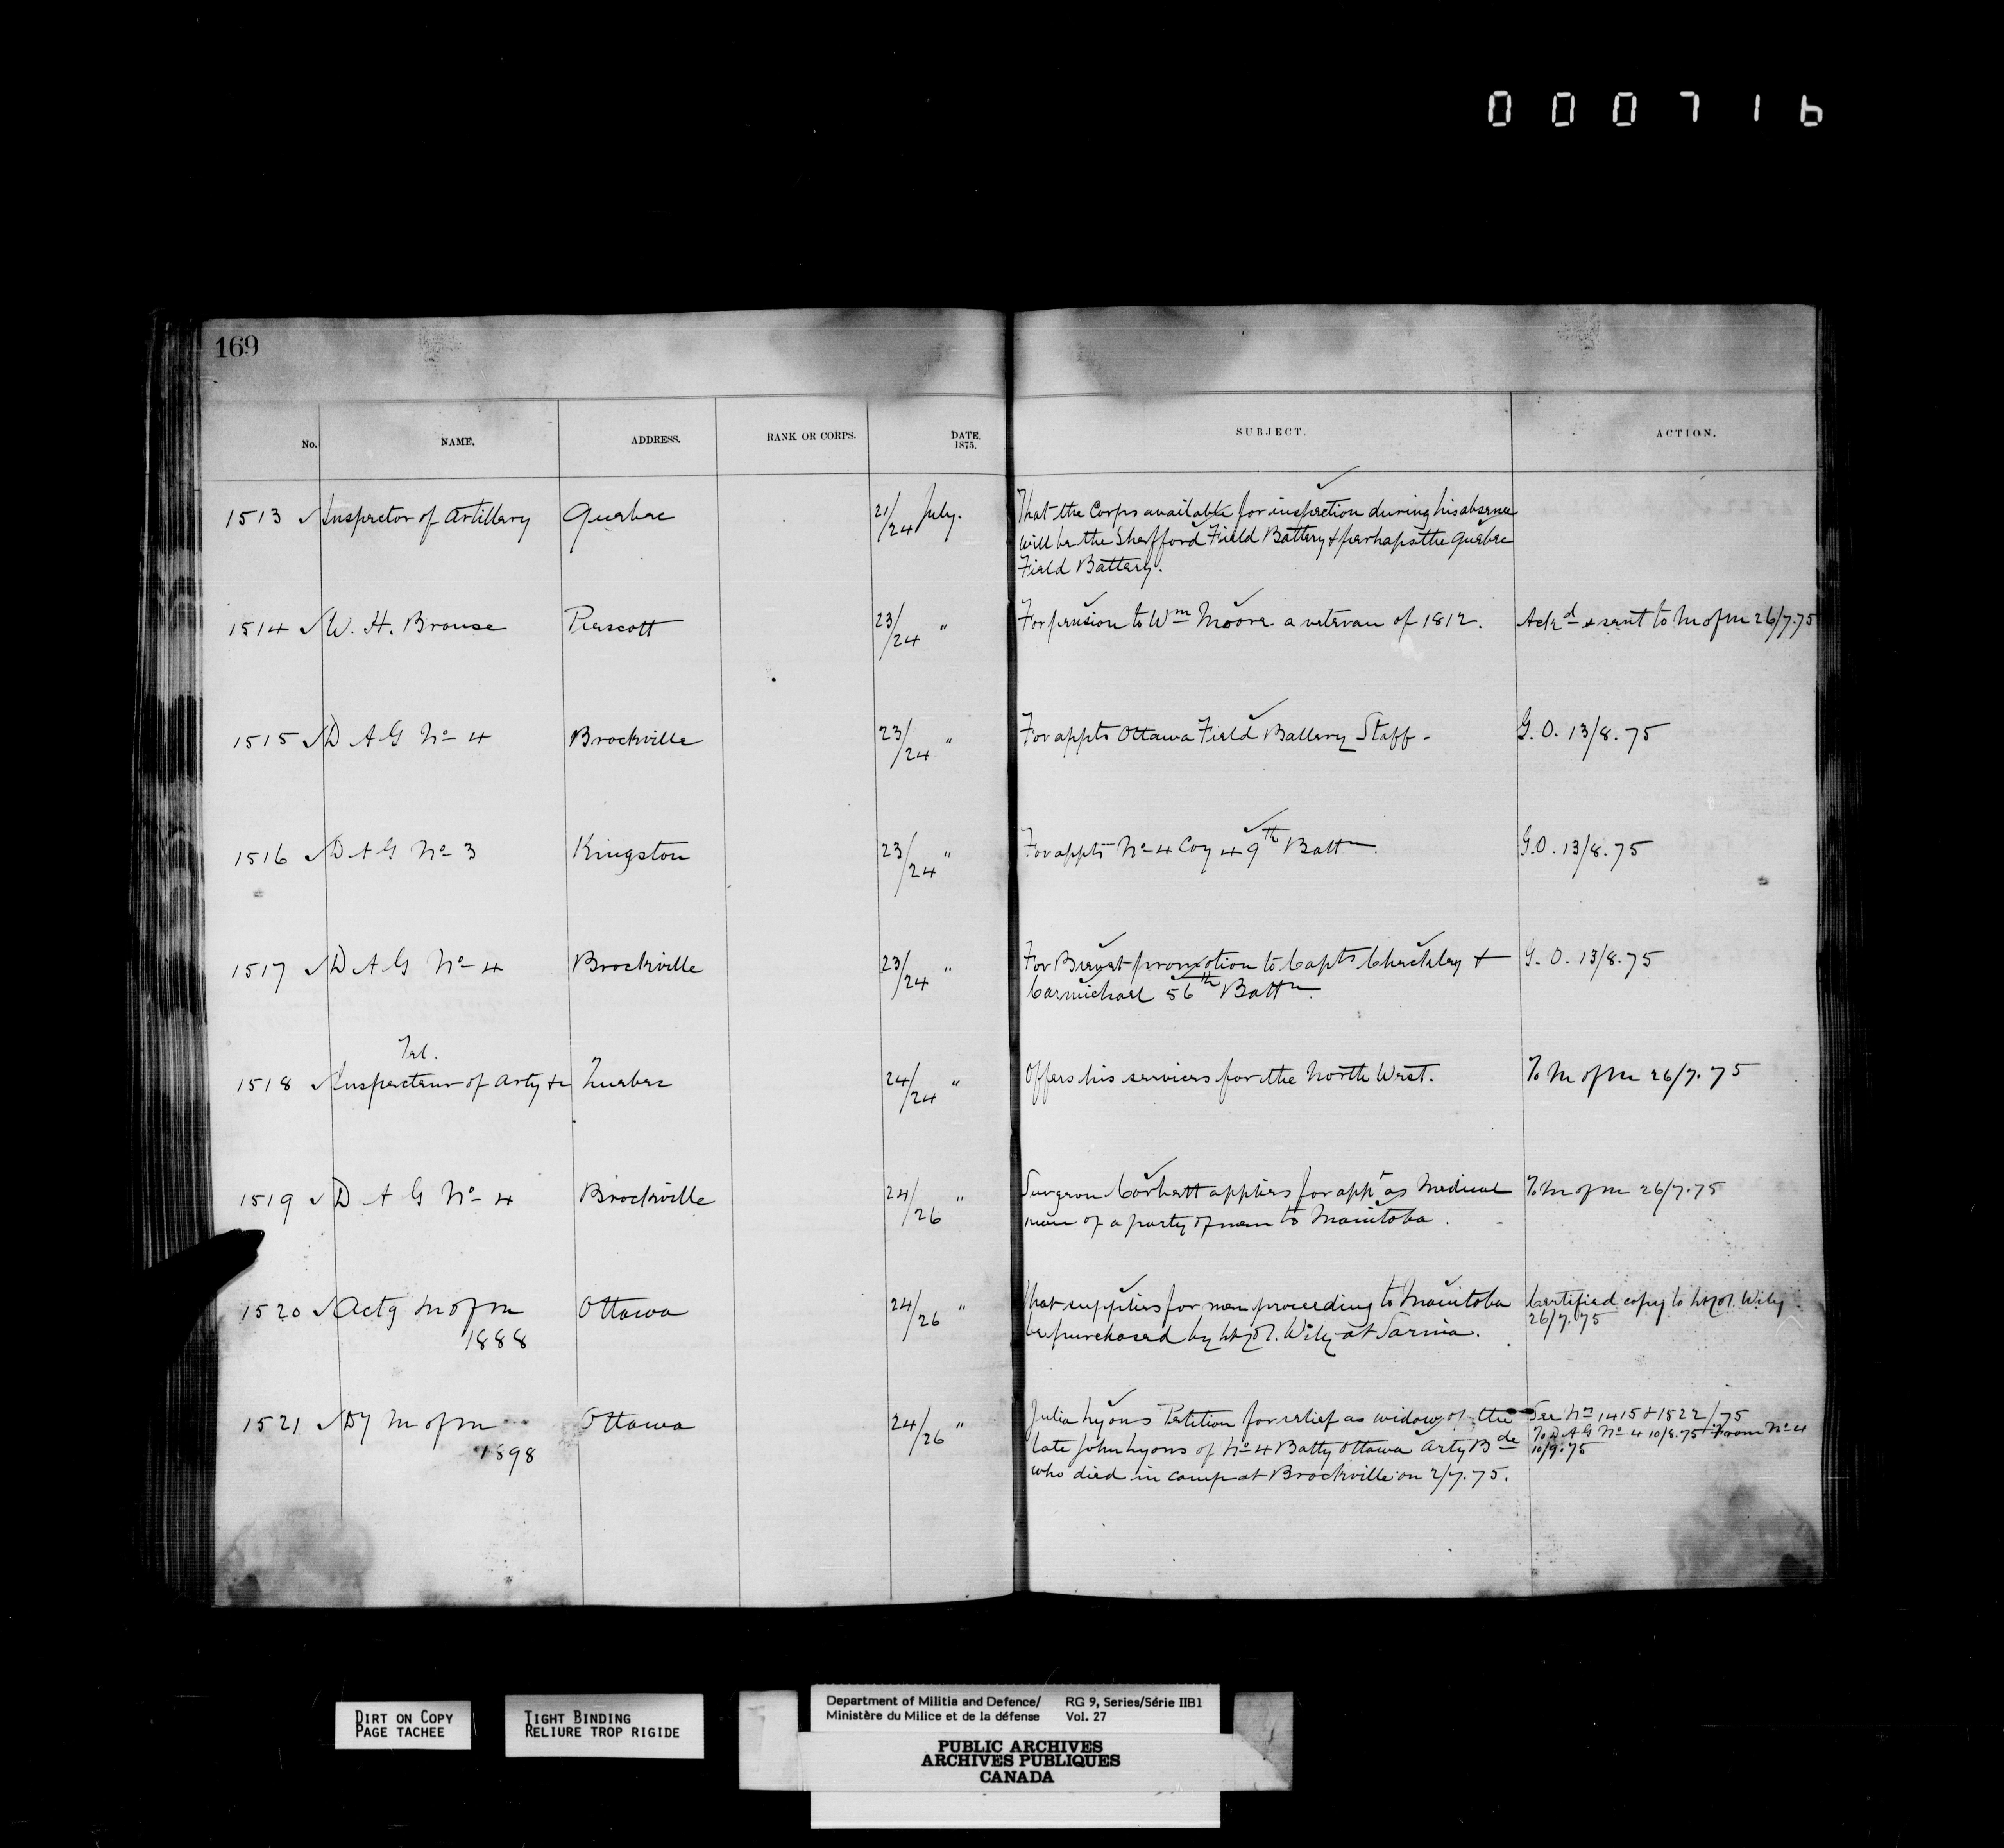 000716
169
No. NAME. ADDRESS. RANK OR CORPS. DATE. 1875. SUBJECT. ACTION.
1513 Inspector of Artillery Quebec 21/24 July. That the Corps available for inspection during his absence
will be the Shefford Field Battery & perhaps the Quebec
Field Battery.
1514 W. H. Brouse Prescott 23/24 " For pension to Wm Moore a veteran of 1812. Ackd & sent to M of M 26/7.75
1515 D A G No 4 Brockville 23/24 " For appts Ottawa Field Battery Staff - G. O. 13/8.75
1516 D A G No 3 Kingston 23/24 " For appts No 4 Coy 49th Battn. G.O. 13/8.75
1517 D A G No 4 Brockville 23/24 " For Brevet promotion to Capts Checkley & G. O. 13/8.75
Carmichael 56th Battn.
Tel.
1518 Inspector of Arty &c Quebec 24/24 " Offers his services for the North West. To M of M 26/7.75
1519 D A G No 4 Brockville 24/26 " Surgeon Corbett applies for appt as Medical To M of M 26/7.75
man of a party of men to Manitoba.
1520 Actg M of M Ottawa 24/26 " That supplies for men proceeding to Manitoba Certified copy to Lt Col. Wily
1888 be purchased by Lt Col. Wily at Sarnia. 26/7.75
1521 Dy M of M Ottawa 24/26 " Julia Lyons Petition for relief as widow of the See Nos 1415 & 1522/75
1898 late John Lyons of No 4 Batty Ottawa Arty Bde To D A G No 4 10/8.75 From No 4
who died in camp at Brockville on 2/7.75. 10/9.75
DIRT ON COPY
PAGE TACHEE
TIGHT BINDING
RELIURE TROP RIGIDE
Department of Militia and Defence/ RG 9, Series/Série IIB1
Ministère du Milice et de la défense Vol. 27
PUBLIC ARCHIVES
ARCHIVES PUBLIQUES
CANADA